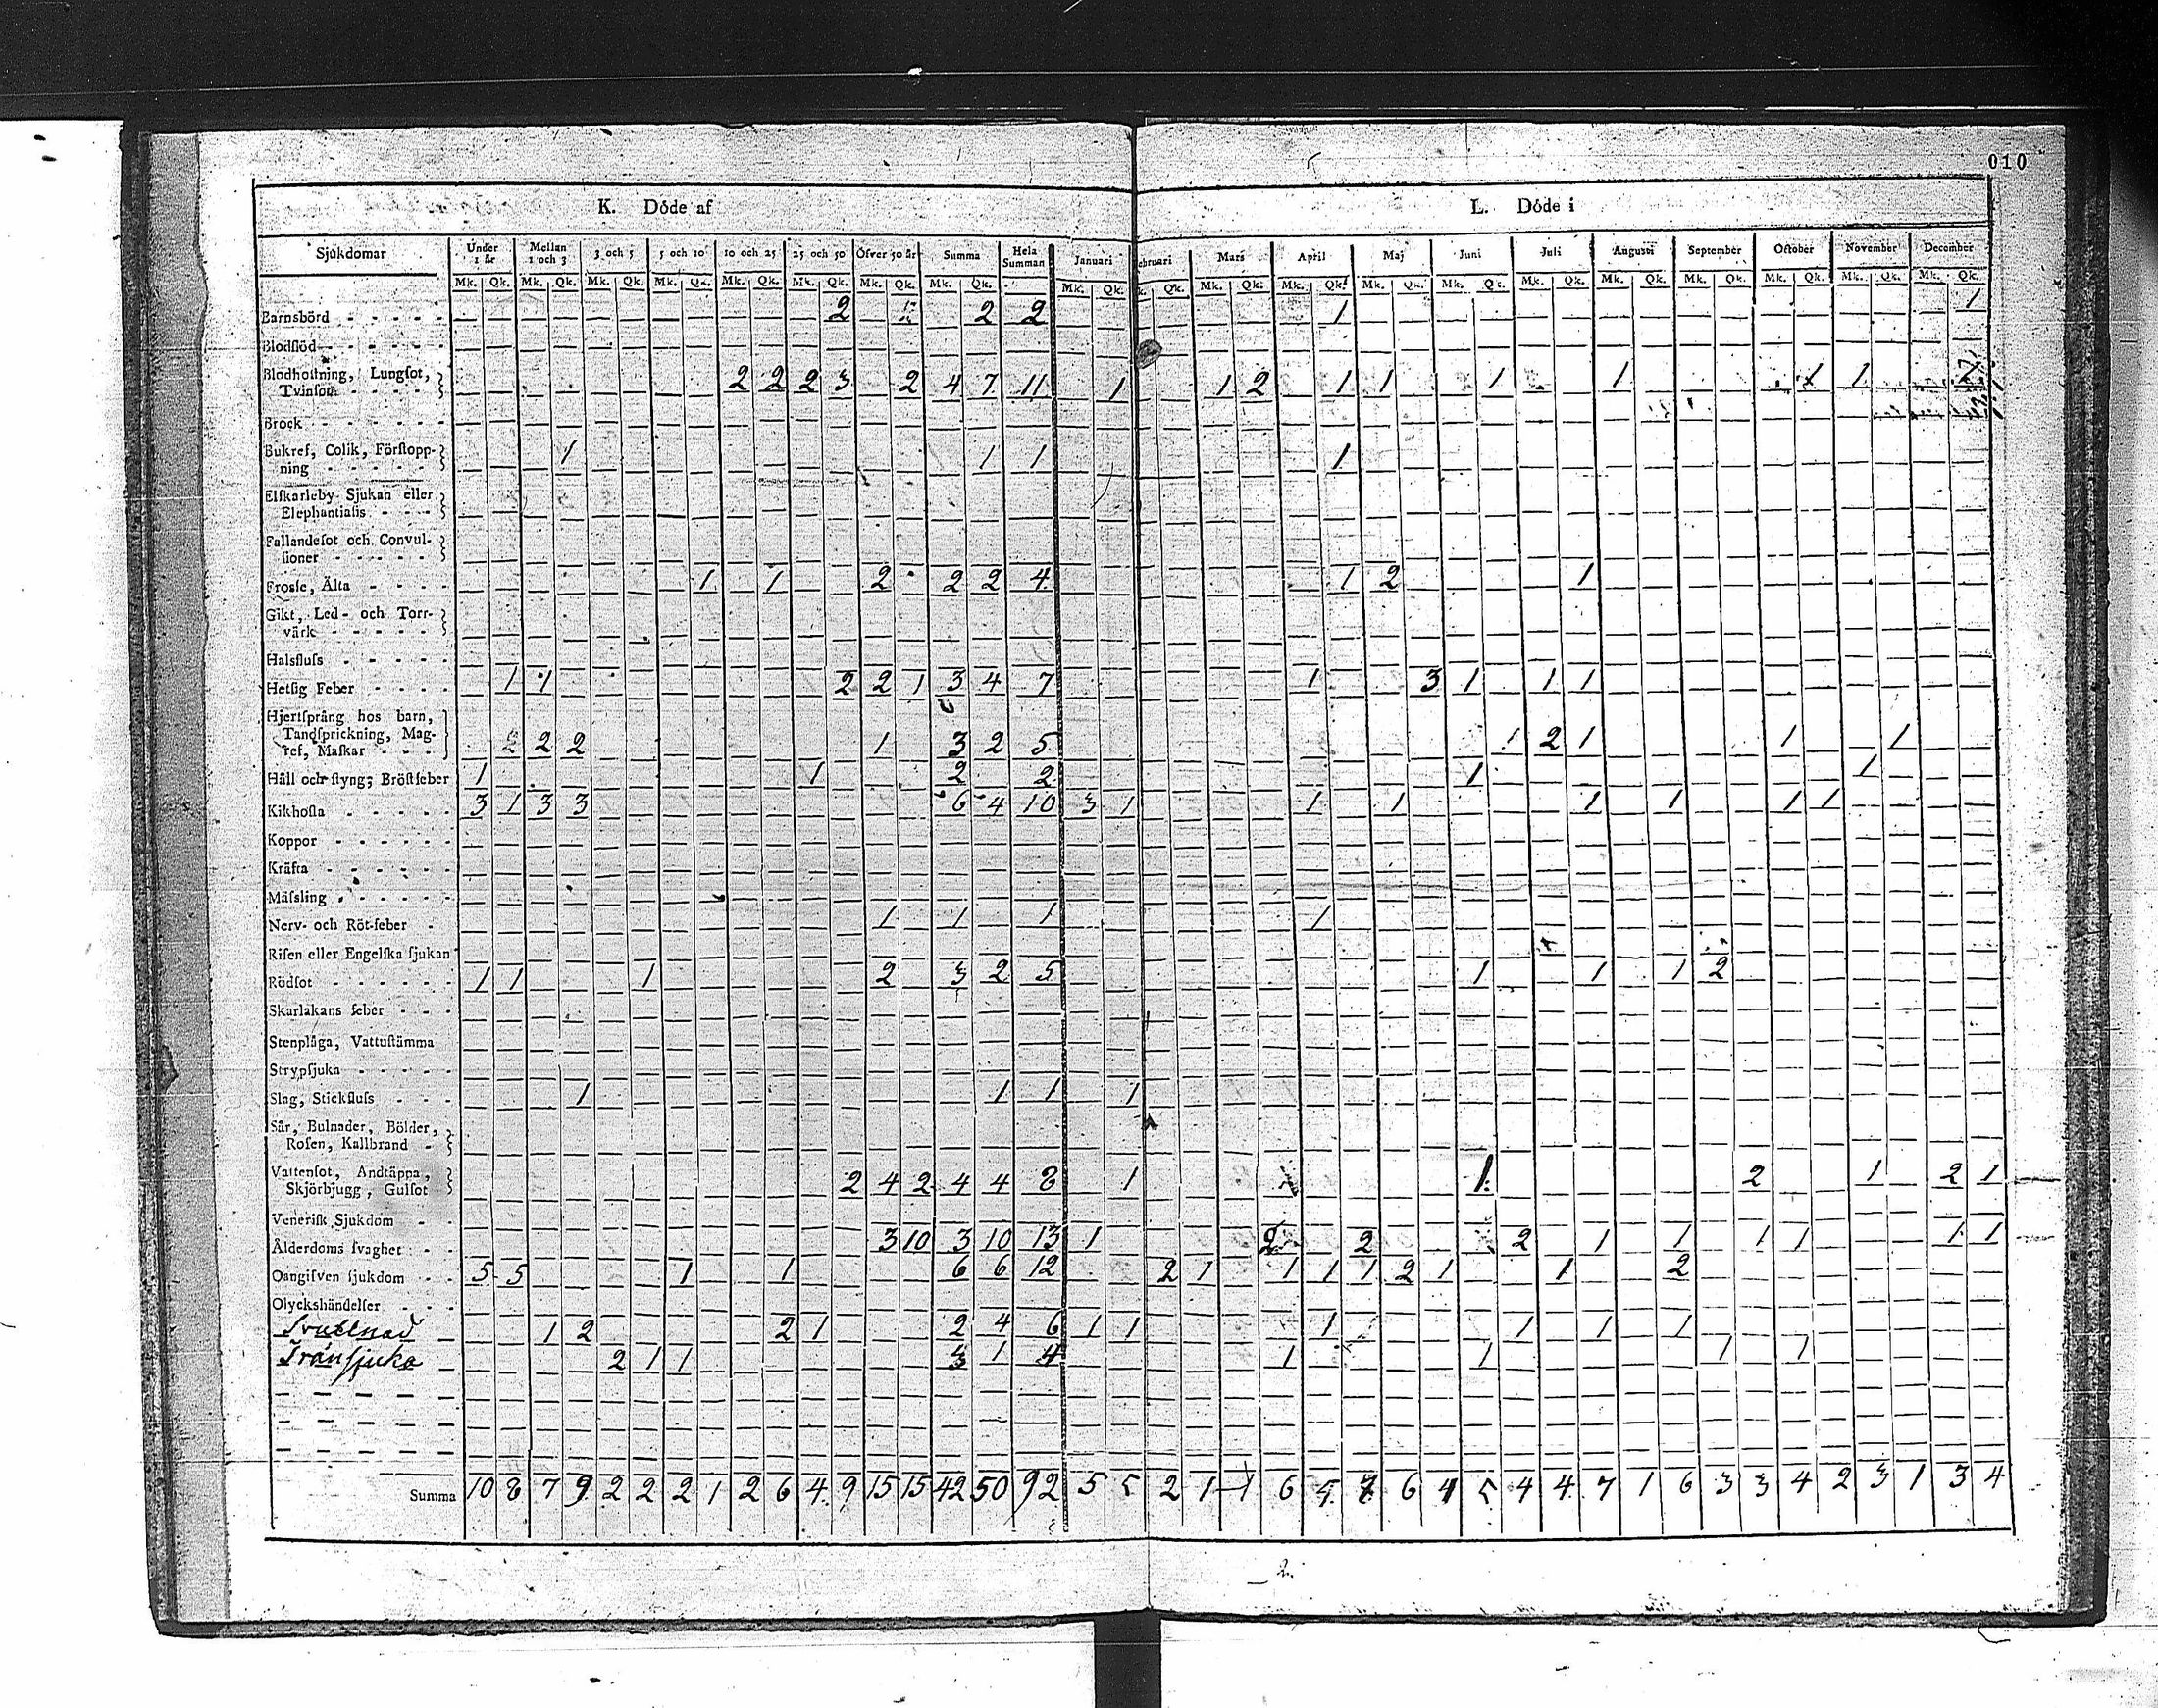 010
K. Döde af
L. Döde i
Sjukdomar Under 1 år Mellan 1 och 3 3 och 5 5 och 10 10 och 25 25 och 50 Öfver 50 år Summa Hela Summan Januari Februari Mars April Maj Juni Juli Augusti September October November December
Mk. Qk. Mk. Qk. Mk. Qk. Mk. Qk. Mk. Qk. Mk. Qk. Mk. Qk. Mk. Qk. Mk. Qk. Qk. Mk. Qk. Mk. Qk. Mk. Qk. Mk. Qk. Mk. Qk. Mk. Qk. Mk. Qk. Mk. Qk. Mk. Qk. Mk. Qk.
Barnsbörd 2 2 2 1 1
Blodflöd
Blodhostning, Lungsot,
Tvinsot 2 2 2 3 2 4 7 11 1 1 2 1 1 1 1 1 1
Brock
Bukref, Colik, Förstopp-
ning 1 1 1 1
Elfkarleby Sjukan eller
Elephantiasis
Fallandesot och Convul-
sioner
Frosse, Älta 1 1 2 2 2 4 1 2 1
Gikt, Led- och Torr-
värk
Halsfluss
Hetsig Feber 1 1 2 2 1 3 4 7 1 3 1 1 1
Hjertsprång hos barn,
Tandsprickning, Mag-
ref, Maskar 2 2 1 3 2 5 1 2 1 1 1
Håll och styng; Bröstfeber 1 1 2 2 1 1
Kikhosta 3 1 3 3 6 4 10 3 1 1 1 1 1 1 1
Koppor
Kräfta
Mässling
Nerv- och Röt-feber 1 1 1 1
Risen eller Engelska sjukan
Rödsot 1 1 1 2 3 2 5 1 1 1 2
Skarlakans feber
Stenplåga, Vattustämma
Strypsjuka
Slag, Stickfluss 1 1 1 1
Sår, Bulnader, Bölder,
Rosen, Kallbrand
Vattensot, Andtäppa,
Skjörbjugg, Gulsot 2 4 2 4 4 8 1 1 2 1 2 1
Venerisk Sjukdom
Ålderdoms svaghet 3 10 3 10 13 1 2 2 2 1 1 1 1 1 1
Oangifven sjukdom 5 5 1 1 6 6 12 2 1 1 1 1 2 1 1 2
Olyckshändelser
1 2 2 1 2 4 6 1 1 1 1 1 1
Tränsjuka 2 1 1 3 1 4 1 1 1 1
Summa 10 8 7 9 2 2 2 1 2 6 4 9 15 15 42 50 92 5 5 2 1 1 6 6 4 5 4 4 7 1 6 3 3 4 2 3 1 3 4